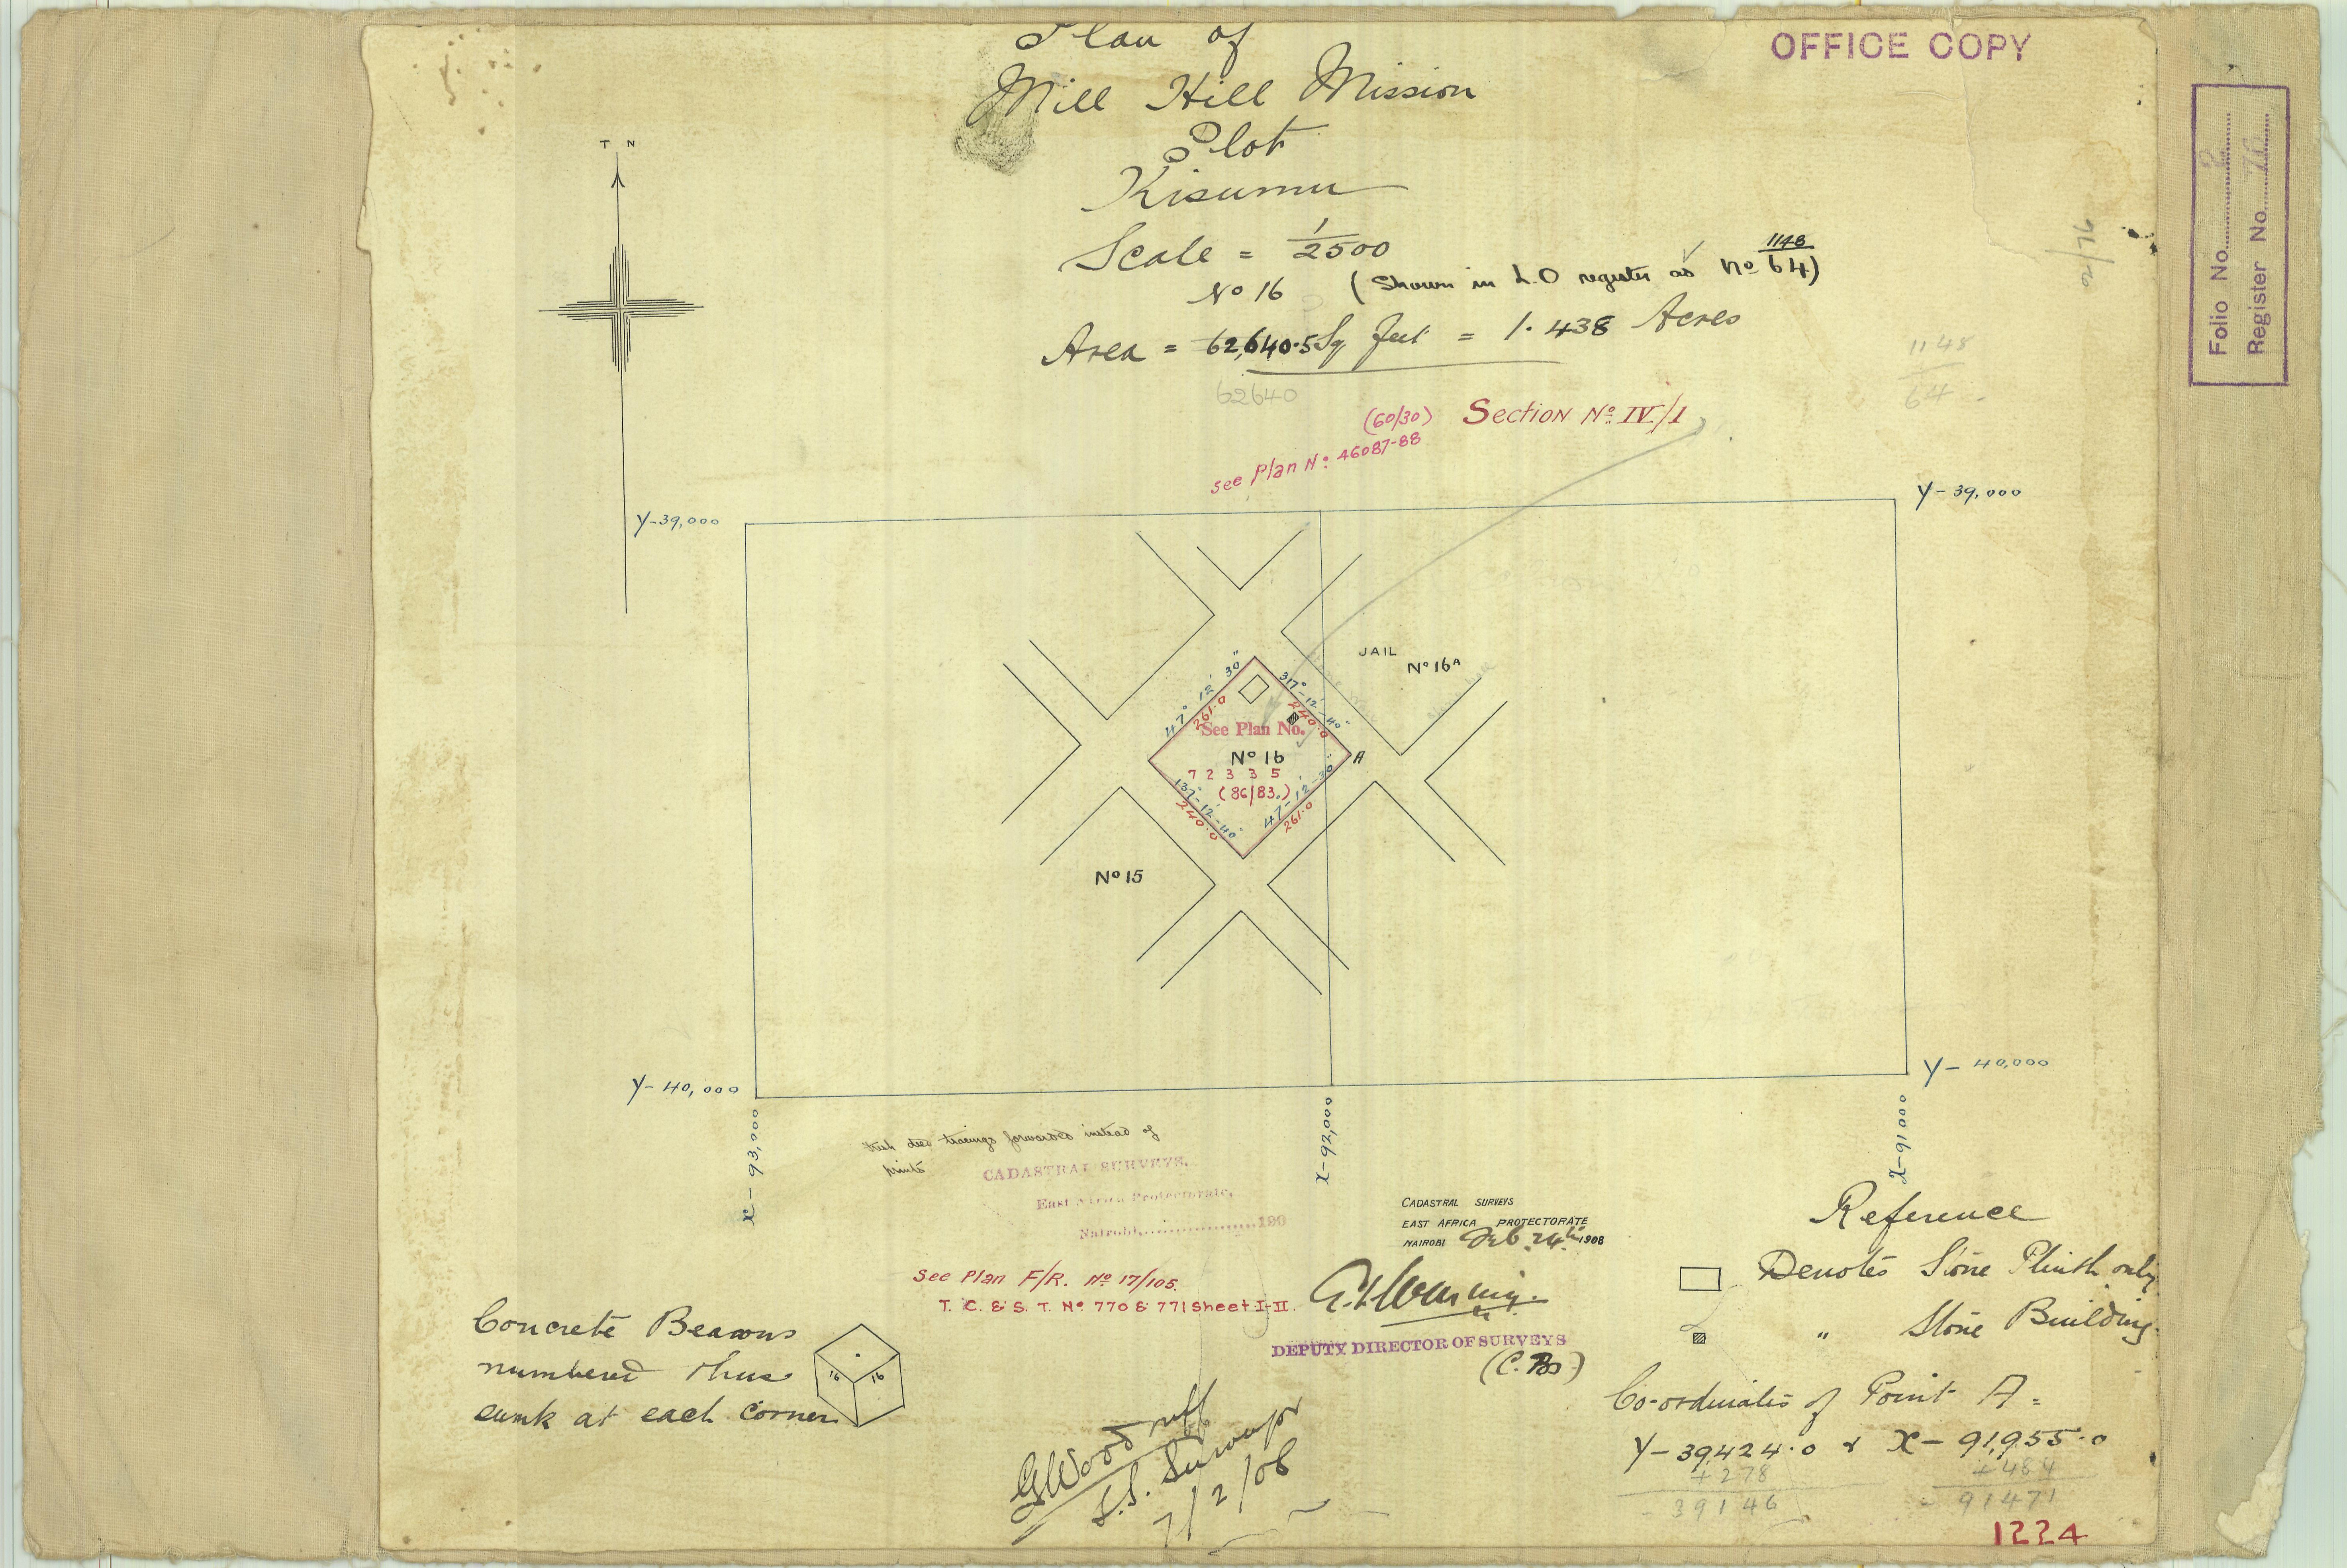 Plan of
OFFICE COPY
Mill Hill Mission
Plot
Kisumu
Scale = 1/2500
No 16 (Shown in L.O register as No 1148/64)
Area = 62,640.5 Sq feet = 1.438 Acres
62640
1148
64
Folio No. 2
Register No. 76
2/76
T N
(60/30)
Section No IV/1
see Plan No: 46087-88
Y-39,000
Y-39,000
JAIL
No 16A
47° 12' 30"
261.0
317°-12'-40"
240.0
See Plan No.
No 16
A
72335
(86/83.)
137-12'-40"
240.0
47-12'-30"
261.0
No 15
Y-40,000
Y-40,000
X-93,000
X-92,000
X-91000
deed tracings forwarded instead of
prints
CADASTRAL SURVEYS.
East Africa Protectorate,
Nairobi, 190
CADASTRAL SURVEYS
EAST AFRICA PROTECTORATE
NAIROBI Feb. 24th 1908
See Plan F/R. No 17/105.
T. C. & S. T. No 770 & 771 Sheet I-II.
DEPUTY DIRECTOR OF SURVEYS
Reference
Denotes Stone Plinth only
" Stone Building
Concrete Beacons
numbered thus
sunk at each corner
16 16
GWoodruff
Surveyor
7/2/08
Co-ordinates of Point A =
Y-39424.0 & X-91,955.0
+278 +484
39146 - 91471
1224